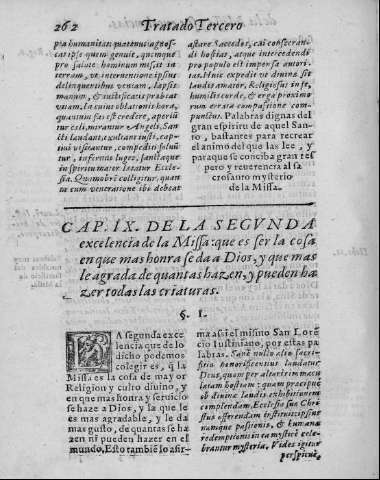 262 Tratado Tercero
pia humanitas: quatenus agnos-
cat ipse quem genuit, quemque
pro salute hominum misit in
terram, vt interuentione ipsius
delinquentibus veniam, lapsis
manum, & iustificatis præbeat
vitam. In cuius oblationis hora,
quantum fas est credere, aperiũ
tur cæli, mirantur Angeli, San-
cti laudant, exultant iusti, cap-
tiui visitantur, compediti soluũ
tur, infernus luget, sanctaque
in spiritu mater lætatur Eccle-
sia. Quamobrem colligitur, quan
ta cum veneratione ibi debeat
astare Sacerdos, cui consecran-
di hostias, atque intercedendi
pro populo est impensa autori-
tas. Hunc expedit vt diuina sit
laudis amator. Religiosus in se,
humilis corde, & erga proximo
rum errata compassione com-
punctus. Palabras dignas del
gran espiritu de aquel San-
to, bastantes para recrear
el animo del que las lee, y
para que se conciba gran res
peto y reuerencia al sa
crosanto mysterio
de la Missa.
CAP. IX. DE LA SEGVNDA
excelencia de la Missa: que es ser la cosa
en que mas honra se da a Dios, y que mas
le agrada de quantas hazen, y pueden ha
zer todas las criaturas.
§. I.
LA segunda exce
lencia que de lo
dicho podemos
colegir es, q̃ la
Missa es la cosa de mayor
Religion y culto diuino, y
en que mas honra y seruicio
se haze a Dios, y la que le
es mas agradable, y le da
mas gusto, de quantas se ha
zen ni pueden hazer en el
mundo. Esto tambiẽ lo afir-
ma assi el mismo San Lorẽ
cio Iustiniano, por estas pa
labras. Sanè nullo alio sacri-
ficio honorificentius laudatur
Deus, quam per altaris immacu
latam hostiam: quam præcipuè
ob diuinæ laudis exhibitionem
complendam. Ecclesiæ suæ Chri
stus offerendam instituit: ipsius
namque passionis, & humanæ
redemptionis in ea mysticè cele-
brantur mysteria. Vides igitur
perspicuè,